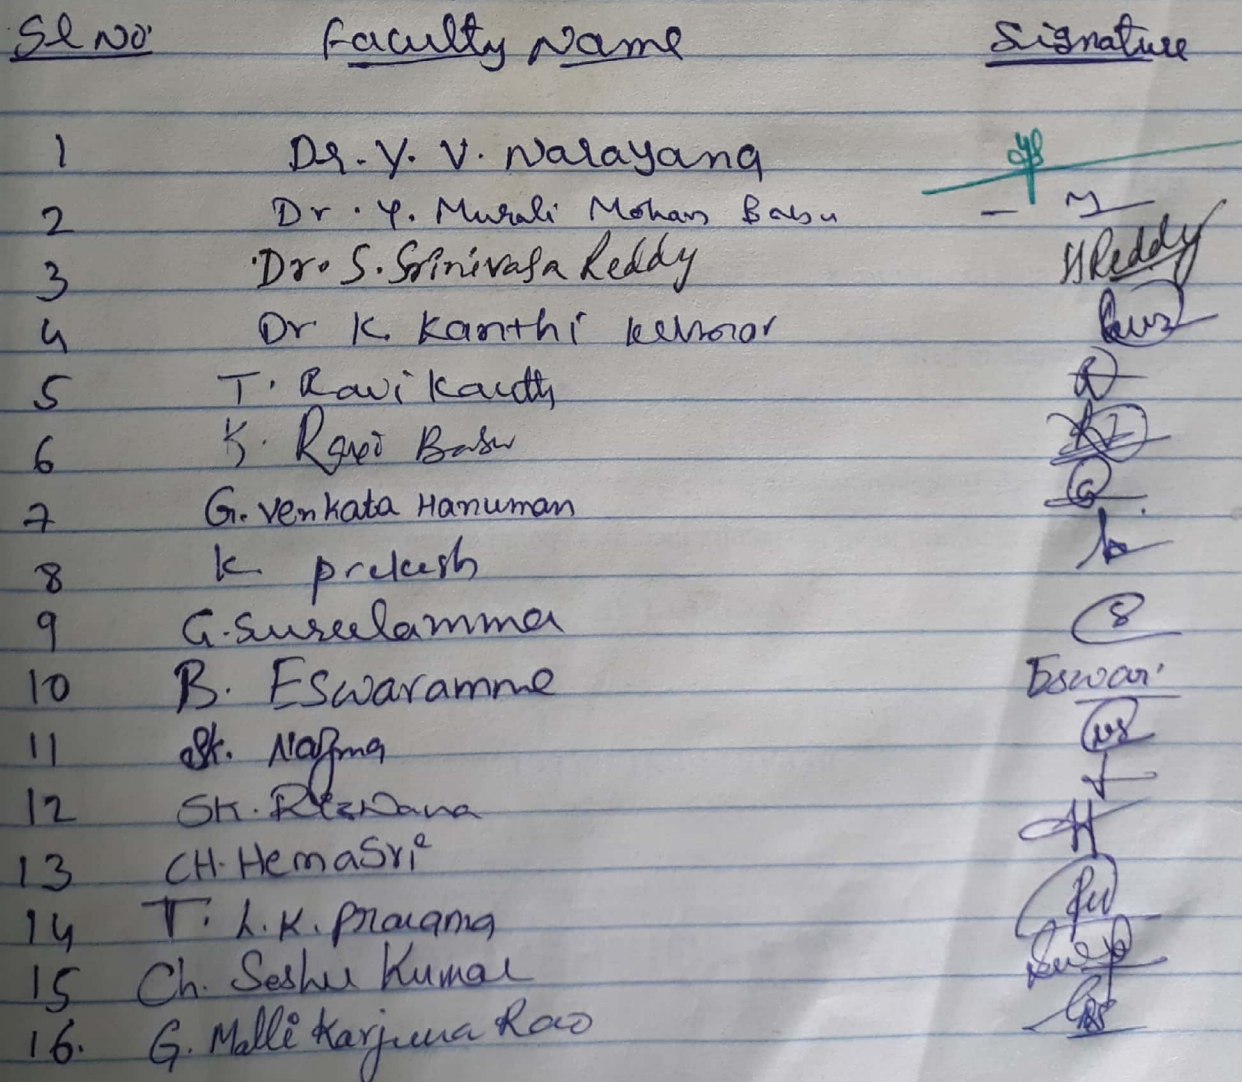 Sl No. Faculty Name Signature
1 Dr. Y. V. Narayana
2 Dr. Y. Murali Mohan Babu
3 Dr. S. Srinivasa Reddy HReddy
4 Dr K. Kanthi Kumar
5 T. Ravi Kanth
6 K. Ravi Babu
7 G. Venkata Hanuman G
8 K Prakash
9 G. Suseelamma S
10 B. Eswaramma Eswari
11 Sk. Nagma
12 SK. Rizwana
13 CH. HemaSri H
14 T. L. K.
15 Ch. Seshu Kumar
16. G. Malli Karjuna Rao